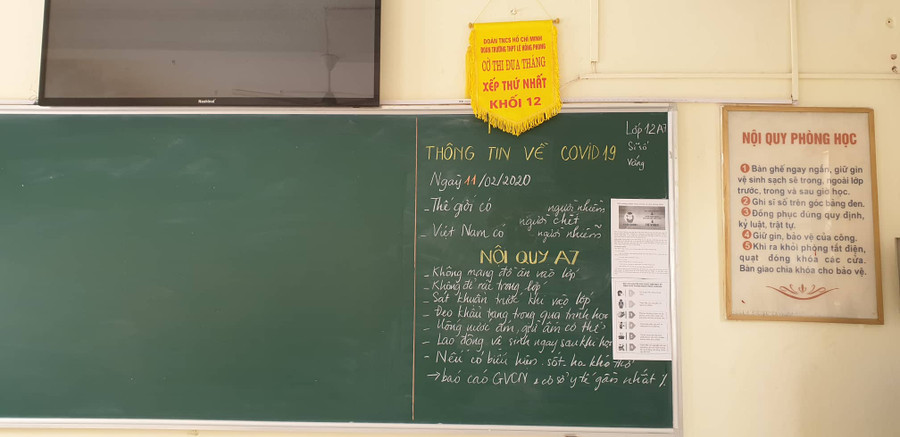 ĐOÀN TNCS HỒ CHÍ MINH
ĐOÀN TRƯỜNG THPT LÊ HỒNG PHONG
CỜ THI ĐUA THÁNG
XẾP THỨ NHẤT
KHỐI 12
Lớp 12A7
Sĩ số
Vắng
THÔNG TIN VỀ COVID 19
Ngày 11/02/2020
- Thế giới có người nhiễm
người chết
- Việt Nam có người nhiễm
NỘI QUY A7
- Không mang đồ ăn vào lớp
- Không để rác trong lớp
- Sát khuẩn trước khi vào lớp
- Đeo khẩu trang trong quá trình học
- Uống nước ấm, giữ ấm cơ thể
- Lao động vệ sinh ngay sau khi học
- Nếu có biểu hiện sốt ho khó thở
→ báo cáo GVCN cơ sở y tế gần nhất
NỘI QUY PHÒNG HỌC
1 Bàn ghế ngay ngắn, giữ gìn
vệ sinh sạch sẽ trong, ngoài lớp
trước, trong và sau giờ học.
2 Ghi sĩ số trên góc bảng đen.
3 Đồng phục đúng quy định,
kỷ luật, trật tự.
4 Giữ gìn, bảo vệ của công.
5 Khi ra khỏi phòng tắt điện,
quạt đóng khóa các cửa.
Bàn giao chìa khóa cho bảo vệ.